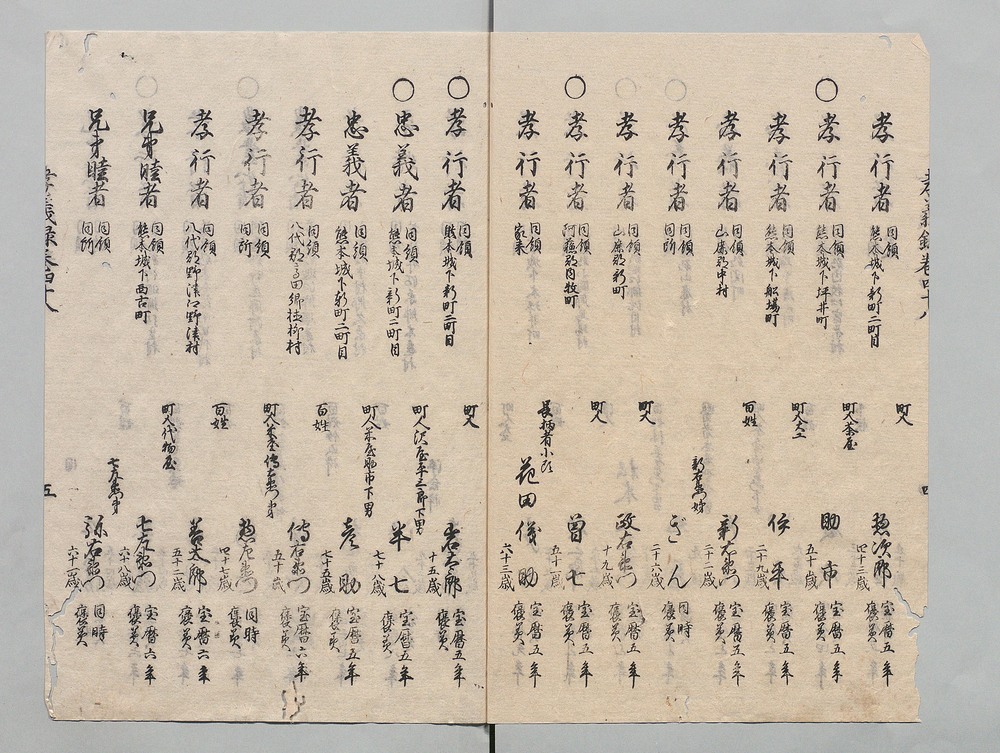 孝行者 同領 熊本城下新町二町目 町人 惣次郎 四十三歳 宝暦五年 褒美
○ 孝行者 同領 熊本城下坪井町 町人茶屋 助市 五十歳 宝暦五年 褒美
孝行者 同領 熊本城下船場町 町人大工 伊平 二十九歳 宝暦五年 褒美
孝行者 同領 山鹿郡中村 百姓 新右衛門 二十二歳 宝暦五年 褒美
孝行者 同領 同所 新右衛門姉 ぎん 二十六歳 同時 褒美
孝行者 同領 山鹿郡新町 町人 政右衛門 十九歳 宝暦五年 褒美
○ 孝行者 同領 阿蘇郡内牧町 町人 曽七 五十一歳 宝暦五年 褒美
孝行者 同領 家来 長柄者小頭 花田儀助 六十三歳 宝暦五年 褒美
孝義録巻四十八 四
○ 孝行者 同領 熊本城下新町二町目 町人 岩太郎 十五歳 宝暦五年 褒美
○ 忠義者 同領 熊本城下新町二町目 町人沢屋平三郎下男 半七 七十八歳 宝暦五年 褒美
忠義者 同領 熊本城下新町二町目 町人茶屋助市下男 彦助 七十五歳 宝暦五年 褒美
孝行者 同領 八代郡高田郷植柳村 百姓 傳右衛門 五十歳 宝暦六年 褒美
孝行者 同領 同所 傳右衛門弟 惣左衛門 四十七歳 同時 褒美
孝行者 同領 八代郡野津郷野津村 百姓 善太郎 五十二歳 宝暦六年 褒美
兄弟睦者 同領 熊本城下西古町 町人代物屋 七左衛門 六十八歳 宝暦六年 褒美
兄弟睦者 同領 同所 七左衛門弟 弥右衛門 六十一歳 同時 褒美
孝義録巻四十八 五